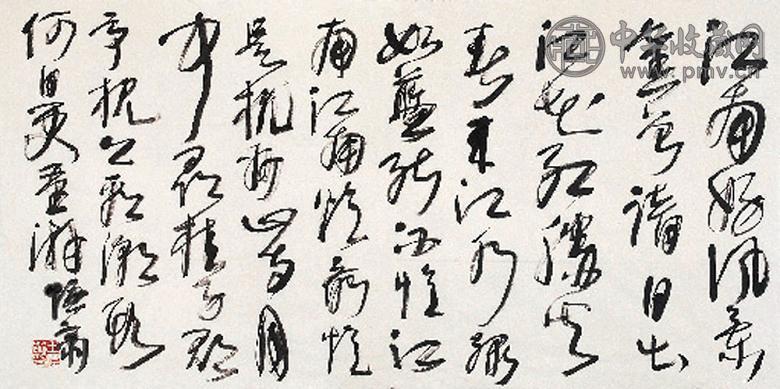 江南好風景
舊曾諳日出
江花紅勝火
春来江水綠
如藍能不憶江
南江南憶最憶
是杭州山寺月
中尋桂子郡
亭枕上看潮頭
何日更重游
中华收藏网
www.pmv.cn